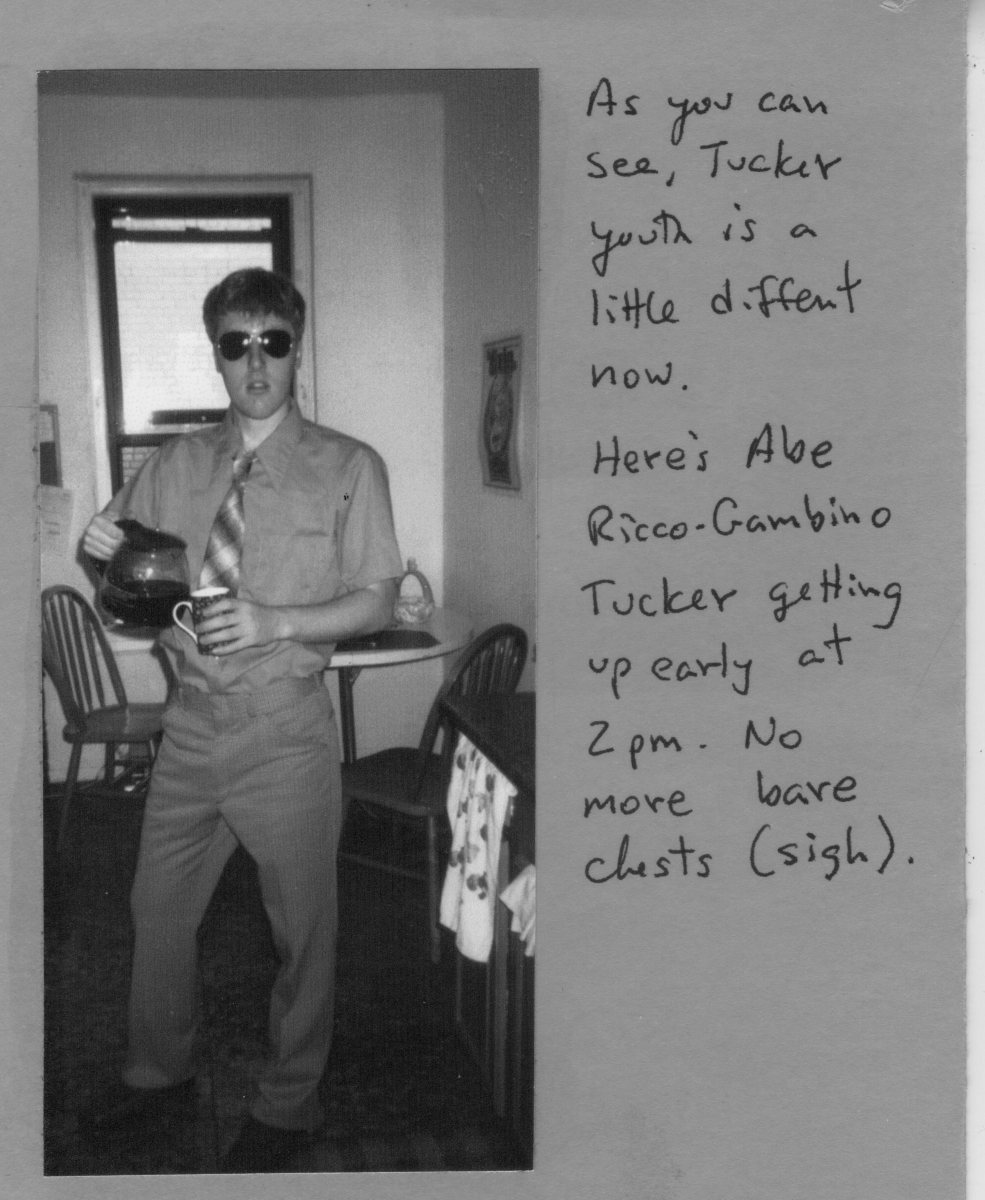 As you can
see, Tucker
youth is a
little diffent
now.
Here's Abe
Ricco-Gambino
Tucker getting
up early at
2pm. No
more bare
chests (sigh).